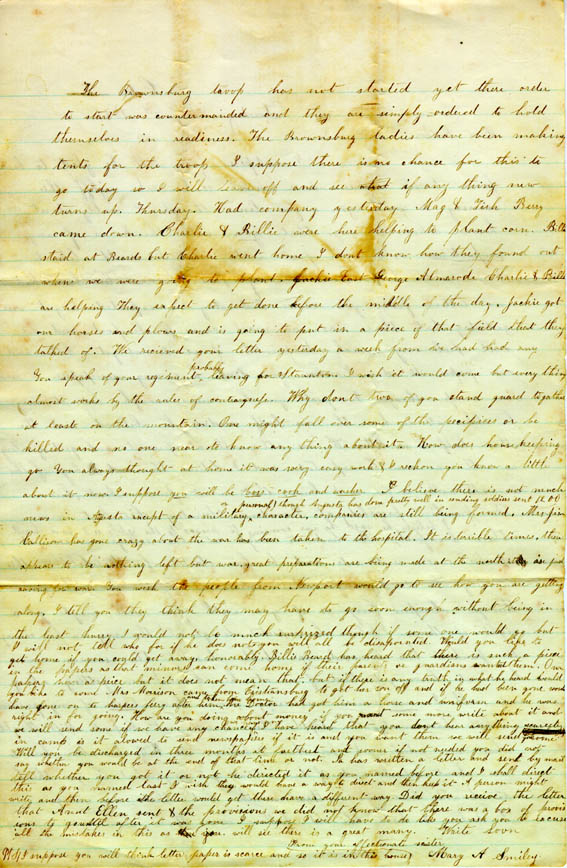 The Brownsburg troop has not started yet there order
to start was countermanded and they are simply ordered to hold
themselves in readiness. The Brownsburg ladies have been making
tents for the troop I suppose there is no chance for this to
go today so I will leave off and see what if any thing new
turns up. Thursday. Had company yesterday Mag & Tish Berry
came down. Charlie & Billie were here helping to plant corn. Bill
staid at Beards but Charlie went home I dont know how they found out
when we were going to plant. Jackie East George Almarode Charlie & Bill
are helping They expect to get done before the middle of the day. Jackie got
our horses and plows and is going to put in a piece of that field that they
talked of. We received your letter yesterday a week from we had had any
You speak of your regiment probably leaving for Staunton I wish it would come but every thing
almost works by the rules of contraries. Why dont two of you stand guard together
at least on the mountain. One might fall over some of the precipices or be
killed and no one near to know any thing about it. How does housekeeping
go You always thought at home it was very easy work & I reckon you know a little
about it now. I suppose you will be boss cook and washer. I believe there is not much
personal) though Augusta has done pretty well in sending soldiers sent
news in Agusta except of a military character, companies are still being formed.
Callison has gone crazy about the war has been taken to the hospital. It is terible times, there
appears to be nothing left but war, great preparations are being made at the north they is just
raving for war. You wish the people from Newport would go to see how you are getting
along. I tell you they think they may have to go soon enough without being in
the least hurry. I would not be much surprized though if some one would go but
I will not tell who for if he does not you will not be disapointed. Would you like to
get home if you could get away honorably. Billie Beard has heard that there is such a piece
in the papers as that minors can come home if their parents or guardians wanted them. Our
papers have a piece but it does not mean that, but if there is any truth in what he heard would
you like to come. Mrs Morison came from Cristansburg to get her son off and if he had been gone would
have gone on to harpers ferry after him, the Doctor had got him a horse and uniform and he was
right in for going. How are you doing about money if you want some more write about it and
we will send some if we have any chance. I have heard that you dont hear anything scarcely
in camp is it allowed to send newspapers if it is and you want them we will send some
Will you be discharged in three months at farthest and sooner if not needed you did not
say whether you would be at the end of that time or not. Pa has written a letter and sent by mail
tell whether you got it or not he directed it as you named before and I shall direct
this as you named last I wish they would have a way to direct and then keep it A person might
write and then before the letter would get there have a different way Did you receive the letter
that Ann Ellen sent & the provisions we did not know that there was a box of provis
ions to
all the mistakes in this as you will see there is a great many. Write Soon
From your affectionate sister
I suppose you will think letter paper is scarce and so it is in this house) Mary A Smiley